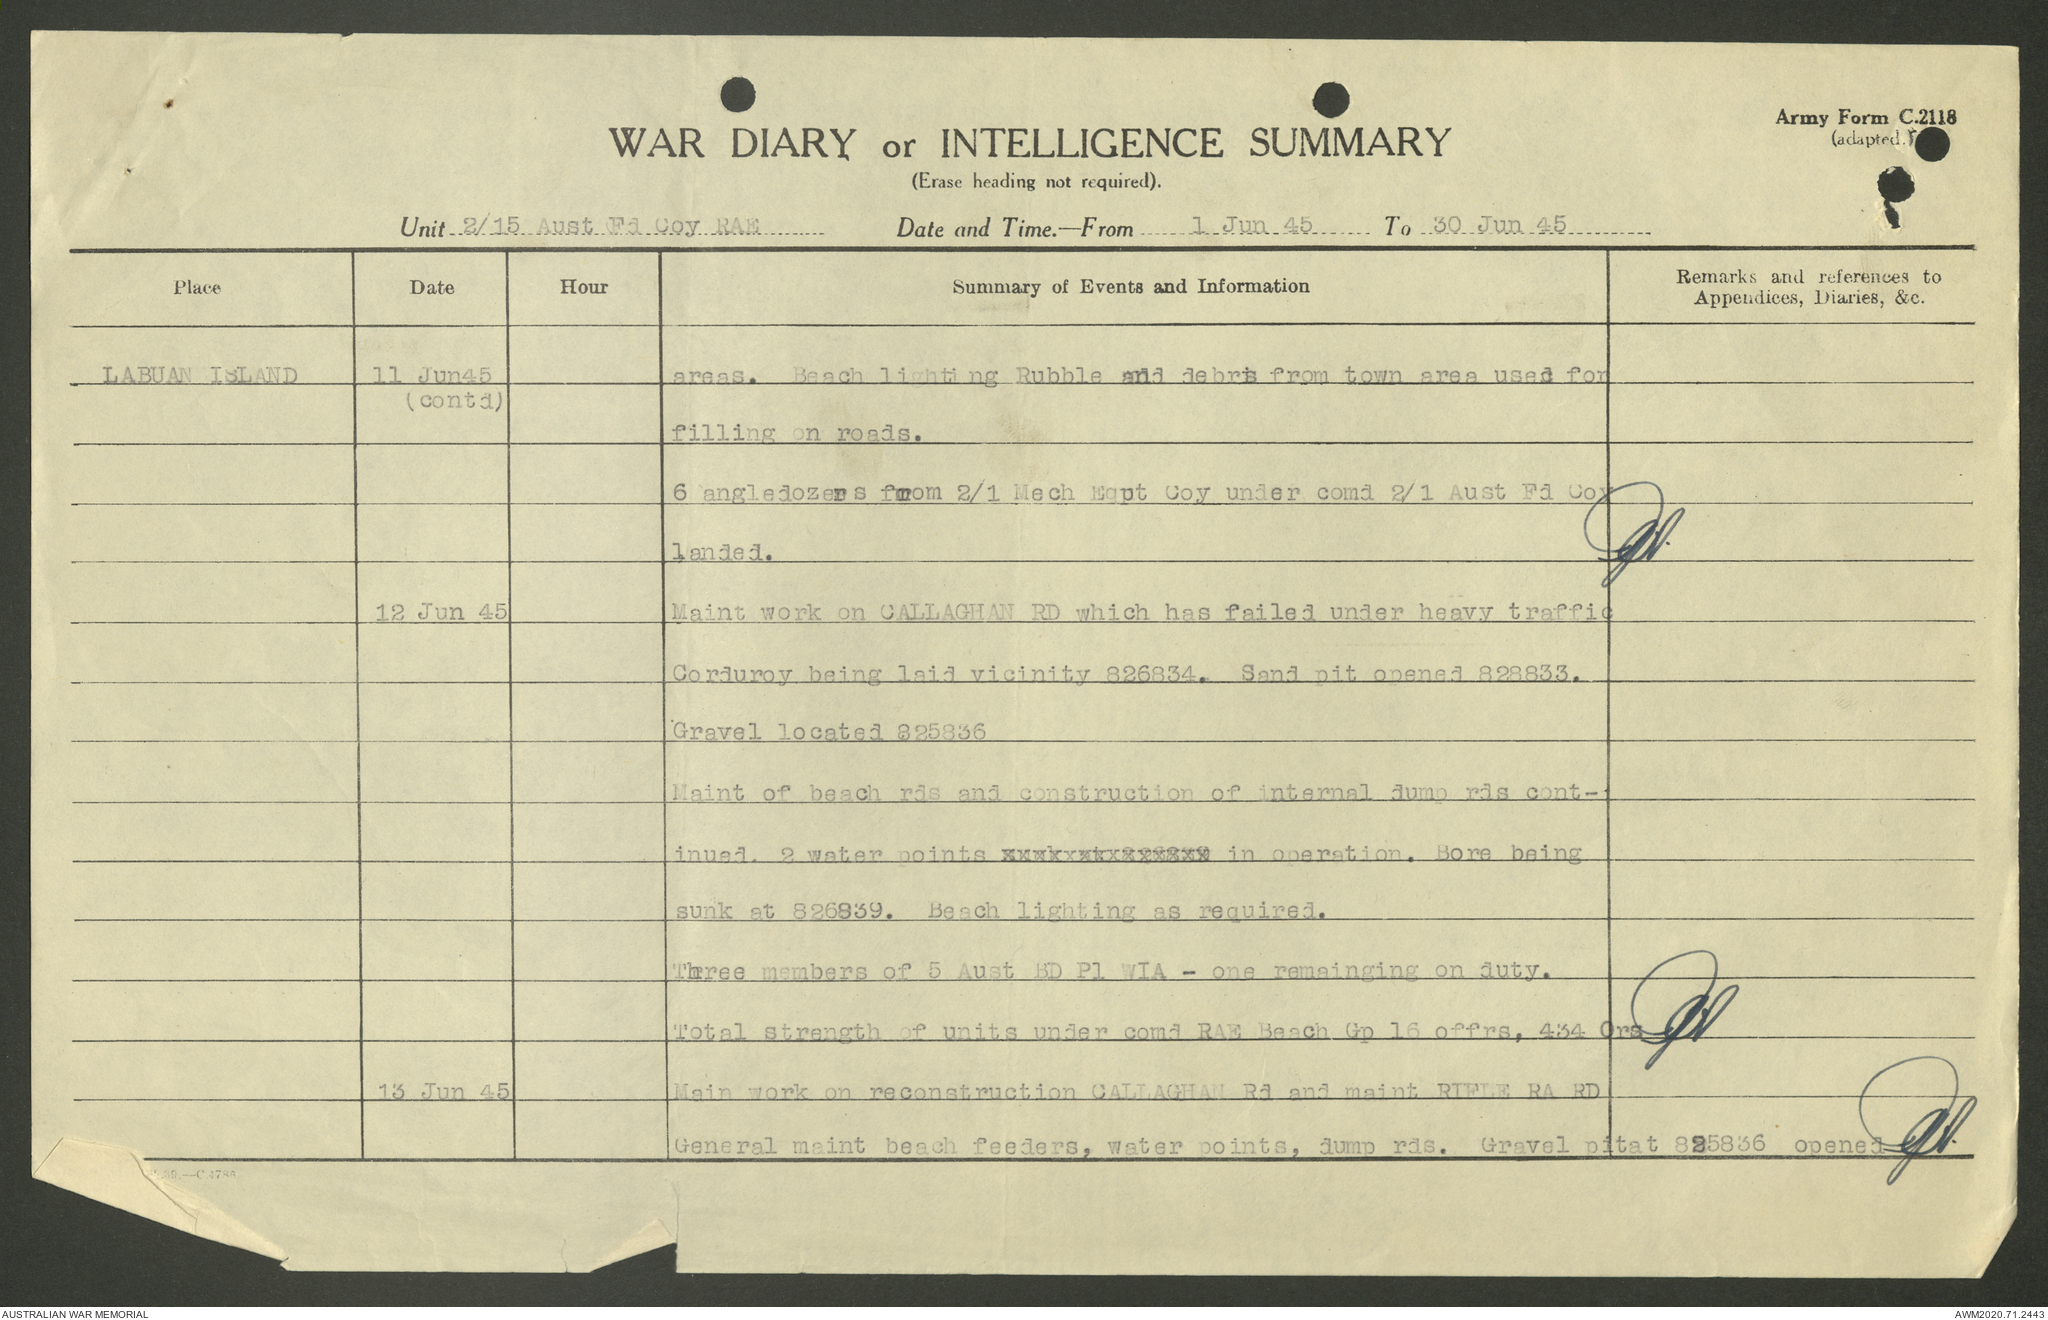 Army Form C.2118
(adapted.)
WAR DIARY or INTELLIGENCE SUMMARY
(Erase heading not required).
Unit 2/15 Aust Fd Coy RAE Date and Time.—From 1 Jun 45 To 30 Jun 45
Place Date Hour Summary of Events and Information Remarks and references to
Appendices, Diaries, &c.
LABUAN ISLAND 11 Jun45 areas. Beach lighting Rubble and debris from town area used for
(contd)
filling on roads.
6 angledozers from 2/1 Mech Eqpt Coy under comd 2/1 Aust Fd Coy
landed.
12 Jun 45 Maint work on CALLAGHAN RD which has failed under heavy traffic
Corduroy being laid vicinity 826834. Sand pit opened 828833.
Gravel located 825836
Maint of beach rds and construction of internal dump rds cont-
inued. 2 water points in operation. Bore being
sunk at 826839. Beach lighting as required.
Three members of 5 Aust BD Pl WIA - one remainging on duty.
Total strength of units under comd RAE Beach Gp 16 offrs, 434 Ors
13 Jun 45 Main work on reconstruction CALLAGHAN Rd and maint RIFLE RA RD
General maint beach feeders, water points, dump rds. Gravel pitat 825836 opened
39.—C.4788.
AUSTRALIAN WAR MEMORIAL AWM2020.71.2443